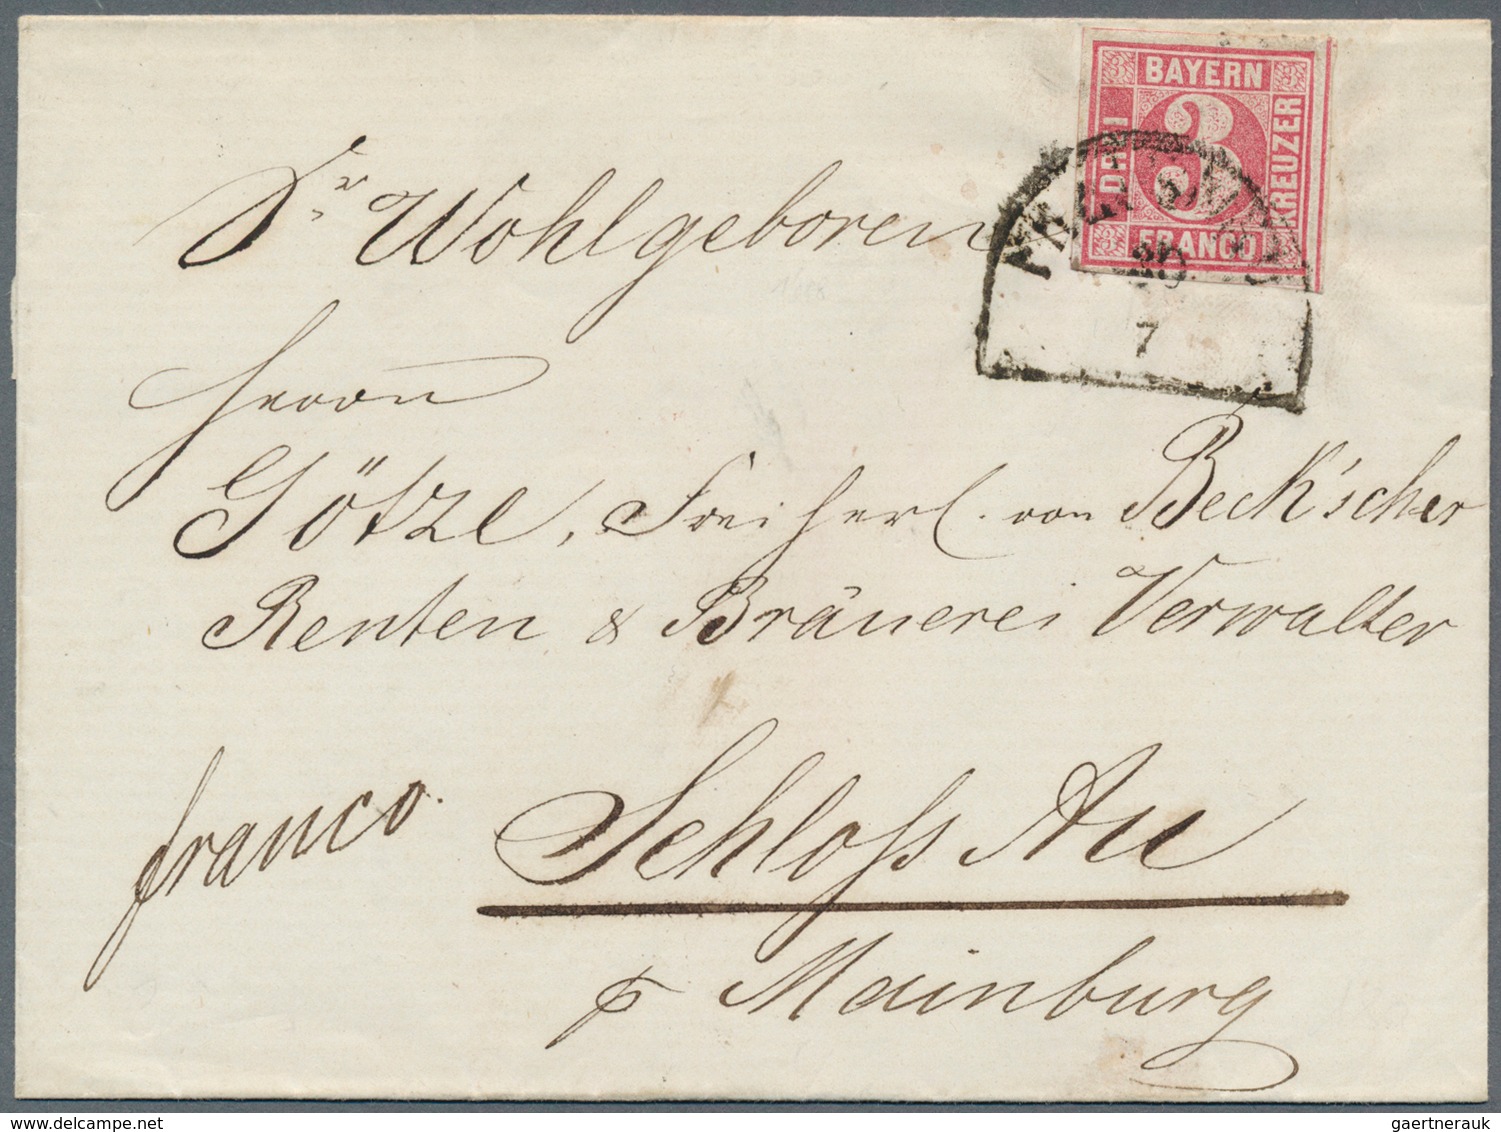 BAYERN
DREI
3
KREUZER
FRANCO
20
7
Sr Wohlgeboren
Herrn
Götze, Freiherl. von Beck'scher
Renten & Bräuerei Verwalter
franco.
Schloss Au
p Mainburg
gaertnerauk